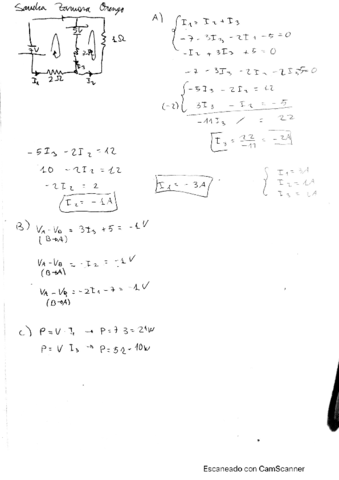 Sandra Zamora Orange
A)
I₁ = I₂ + I₃
-7 - 3I₃ - 2I₁ - 5 = 0
-I₂ + 3I₃ + 5 = 0
5V
1Ω
7V
I₁
2Ω
I₂
-7 - 3I₃ - 2I₂ - 2I₃ - 5 = 0
-5I₃ - 2I₂ = 12
(-2)
3I₃ - I₂ = -5
-11I₃ / = 22
I₃ = 22/-11 = -2A
-5I₃ - 2I₂ = 12
10 - 2I₂ = 12
-2I₂ = 2
I₂ = -1A
I₁ = -3A
I₁ = 3A
I₂ = 1A
I₃ = 2A
B) VA - VB = 3I₃ + 5 = -1V
(B→A)
VA - VB = -I₂ = -1V
(B→A)
VA - VB = -2I₁ - 7 = -1V
(B→A)
C) P = V · I₁ → P = 7·3 = 21W
P = V I₃ → P = 5·2 = 10W
Escaneado con CamScanner